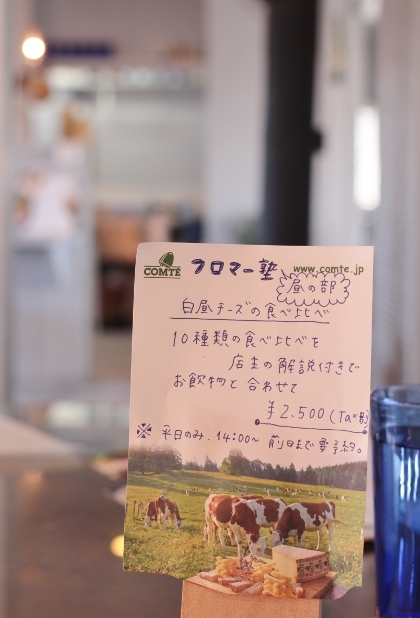 COMTÉ フロマー塾 www.comte.jp
昼の部
白昼チーズの食べ比べ
10種類の食べ比べを
店主の解説付きで
お飲物と合わせて
¥2.500(Tax別)
※ 平日のみ.14:00~ 前日まで要予約。